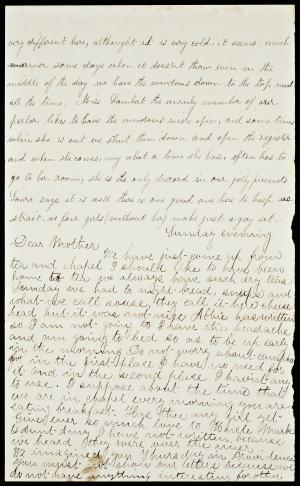 very different here, althought it is very cold, it seems much
warmer some days when it doesn't thaw even in the
middle of the day we have the windows down to the top, and
all the time. Miss Dambert the unruly member of our
parlor likes to have the windows more open, and some times
when she is out we shut them down and open the register
and when she comes, my what a time she has, often has to
go to her room, she is the only discord in our jolly friends
Laura says it is well there is one good one here to keep us
straight, we four girls (without her) make just a gay set.
Sunday evening
Dear Mother
We have just come up from
tea and chapel I should like to have been
home to tea, we always have such dry teas
Sunday we had to night bread, and
what we call souse, they call it hogs cheese
head but it was not nice Abbie has written
so I am not going to I have the headache
and am going to bed so as to be up early
in the morning Do not worry about
in the first place I have no need for
it and in the second place I havn't any
to use. I suppose about the time that
we are in chapel every morning you are
eating breakfast. Has the any girl yet
Give ever so much love to
I havn't written because
we heard they were over the river
We imagined you Thursday in Providence
You must not show our letters because we
do not have anything interesting for other